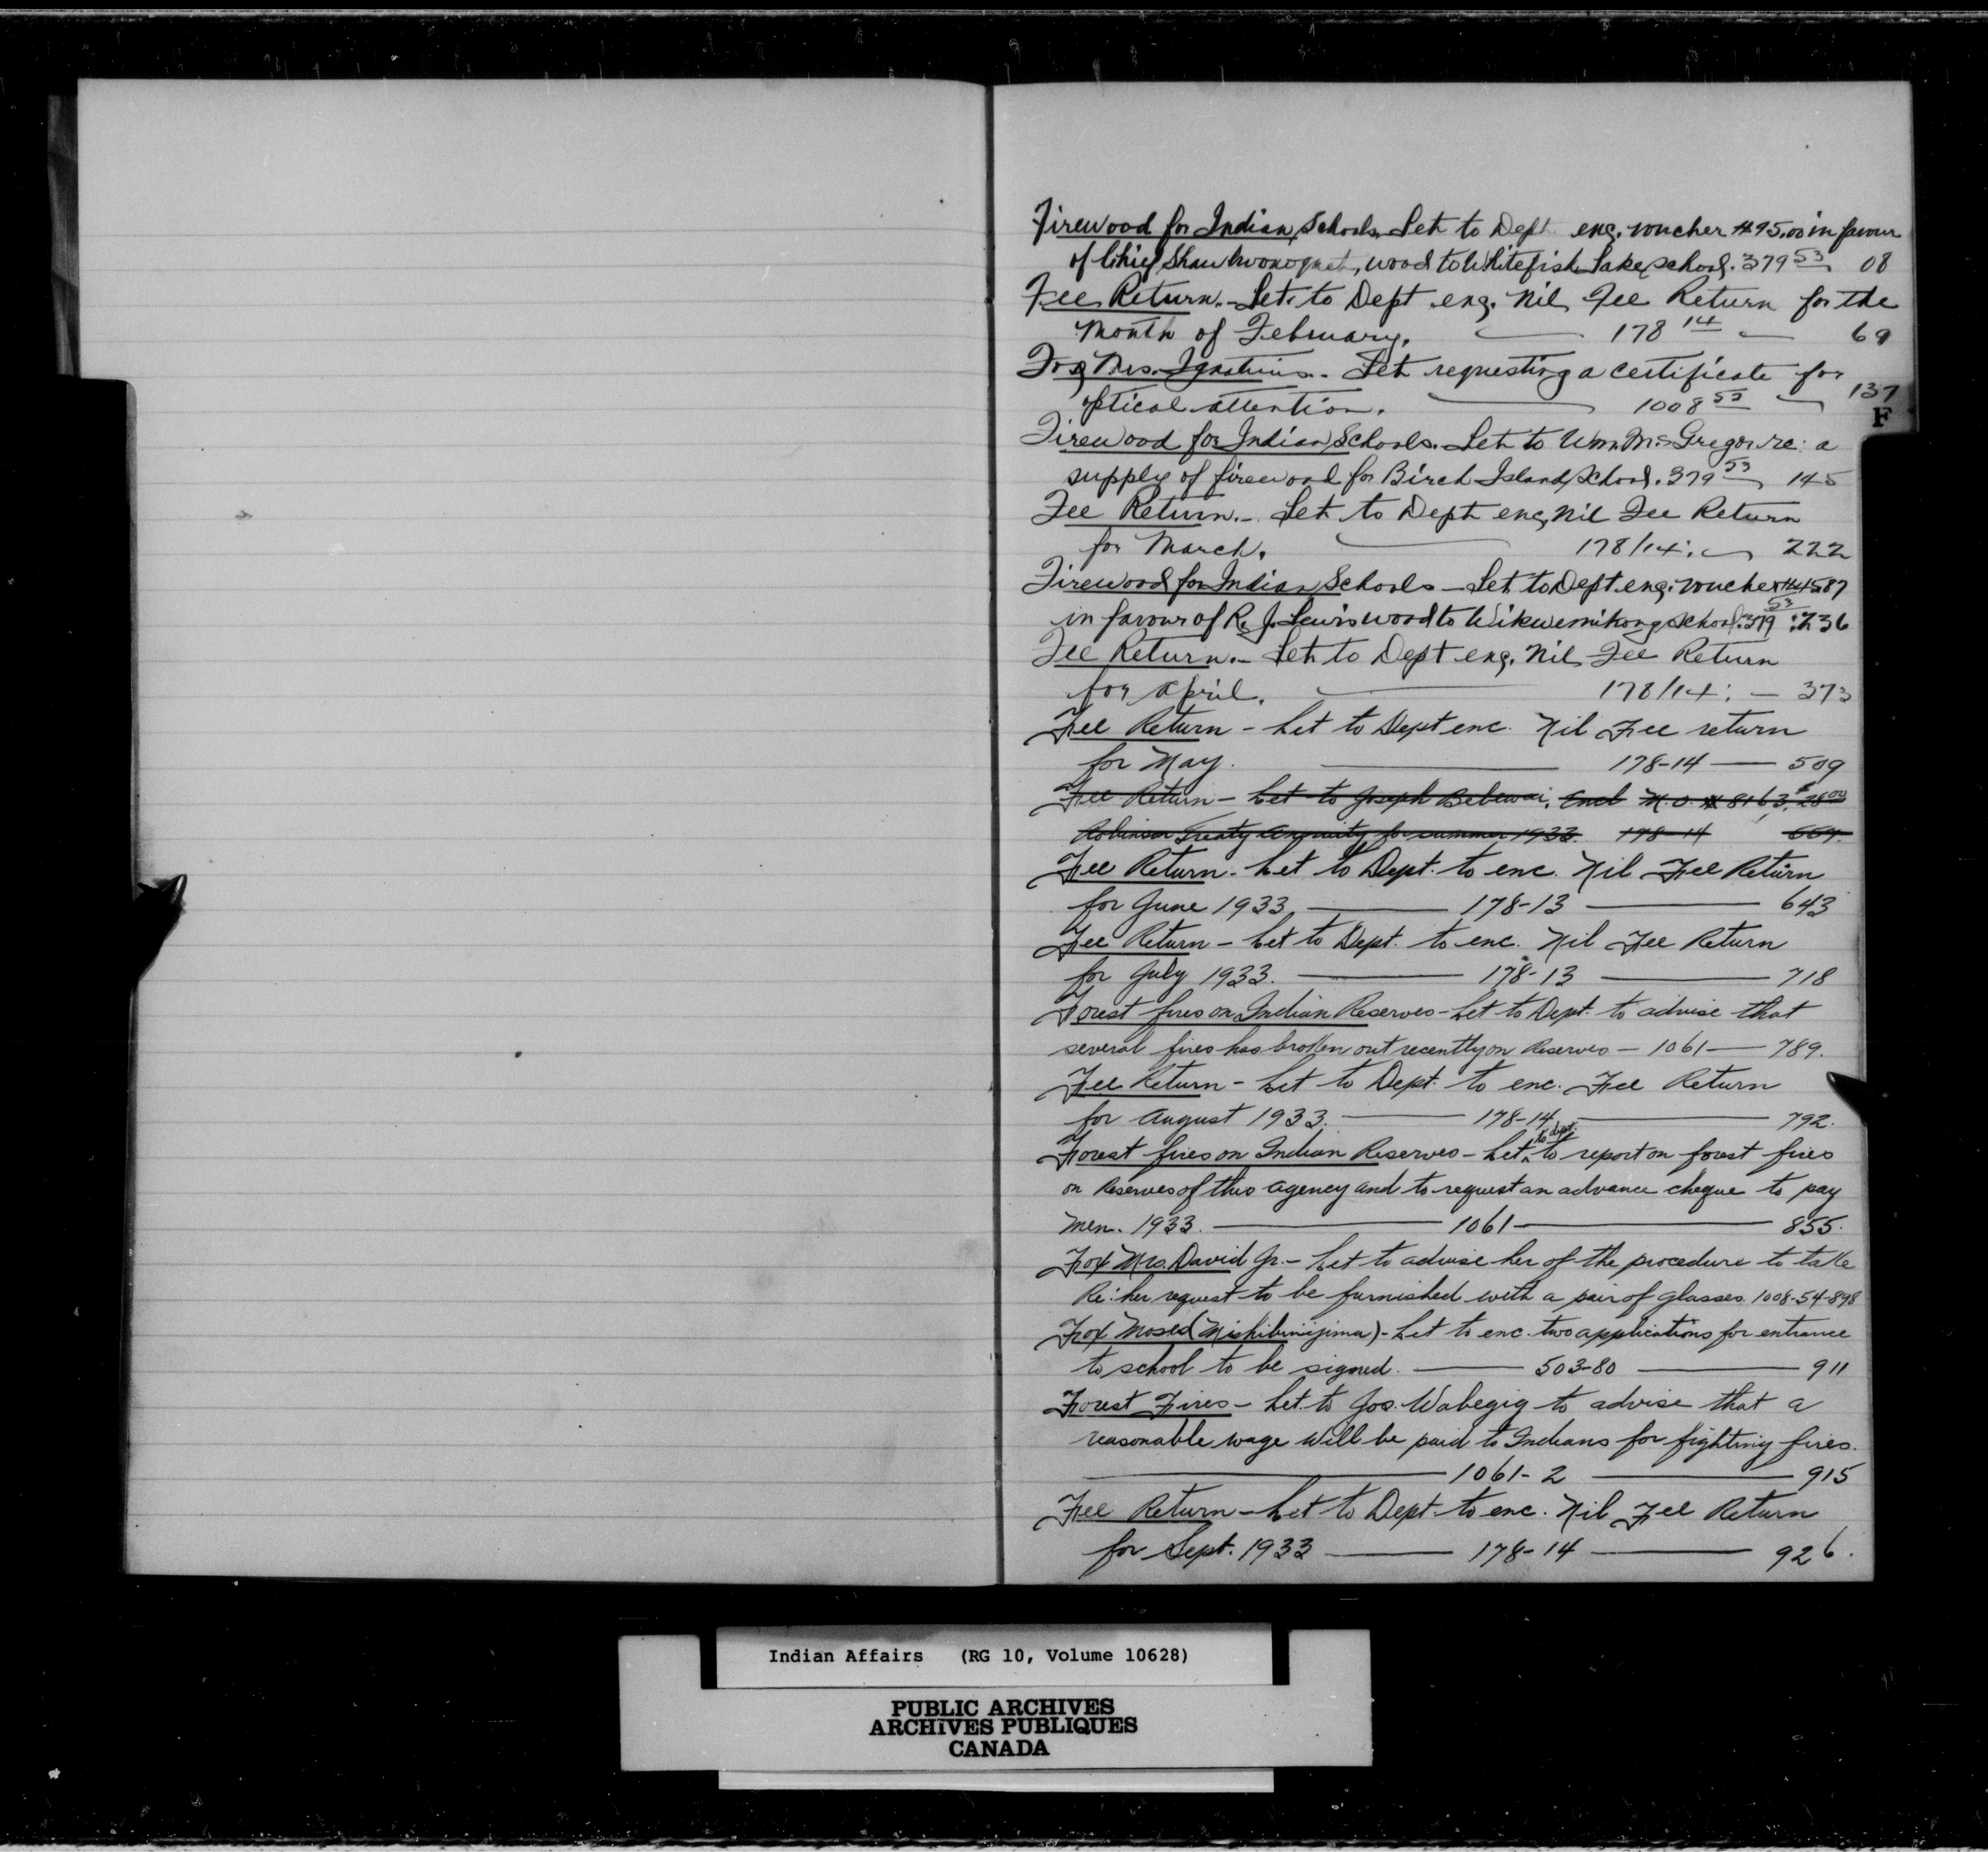 Firewood for Indian Schools. Let to Dept enc. voucher $95.00 in favour
of Chief wood to Whitefish Lake school. 379 53 08
Fee Return. - Let. to Dept enc. Nil Fee Return for the
month of February. 178 14 69
Fox Mrs. Ignatius. - Let requesting a certificate for
optical attention. 1008 53 137
F
Firewood for Indian Schools. Let to Wm. McGregor re: a
supply of firewood for Birch Island School. 379 53 145
Fee Return. - Let to Dept enc. Nil Fee Return
for March. 178/14: 222
Firewood for Indian Schools - Let to Dept. enc. voucher
in favour of R. J. Lewis wood to Wikwemikong school. 379 53 : 236
Fee Return. - Let to Dept enc. Nil Fee Return
for April. 178/14: - 373
Fee Return - Let to Dept enc. Nil Fee return
for May. 178-14 — 509
Fee Return - Let to Joseph Bebewai. Encl M.O. # 8163, $28.00
Robinson Treaty annuity for summer 1933. 178-14
Fee Return - Let to Dept. to enc. Nil Fee Return
for June 1933 — 178-13 — 643
Fee Return - Let to Dept. to enc. Nil Fee Return
for July 1933. — 178-13 — 718
Forest fires on Indian Reserves - Let to Dept. to advise that
several fires has broken out recently on Reserves - 1061 — 789.
Fee Return - Let to Dept. to enc. Fee Return
for August 1933. — 178-14 — 792.
Forest fires on Indian Reserves - Let. to dept. to report on forest fires
on Reserves of this agency and to request an advance cheque to pay
men. 1933. — 1061 — 855.
Fox Mrs. David Jr. - Let to advise her of the procedure to take
Re: her request to be furnished with a pair of glasses. 1008-54-898
Fox Moses (Mishibinijima) - Let to enc. two applications for entrance
to school to be signed. — 503-80 — 911
Forest Fires - Let. to Jos. Wabegig to advise that a
reasonable wage will be paid to Indians for fighting fires.
— 1061-2 — 915
Fee Return - Let to Dept to enc. Nil Fee Return
for Sept. 1933 — 178-14 — 926.
Indian Affairs (RG 10, Volume 10628)
PUBLIC ARCHIVES
ARCHIVES PUBLIQUES
CANADA